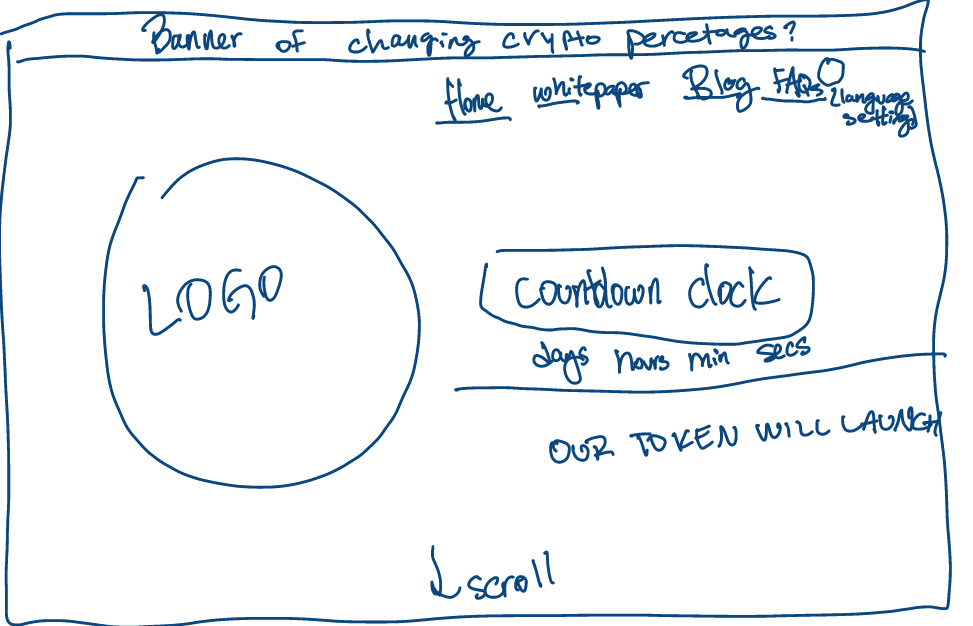 Banner of changing crypto percetages?
Home whitepaper Blog FAQs
language
settings
LOGO
countdown clock
days hours min secs
OUR TOKEN WILL LAUNCH
↓ scroll